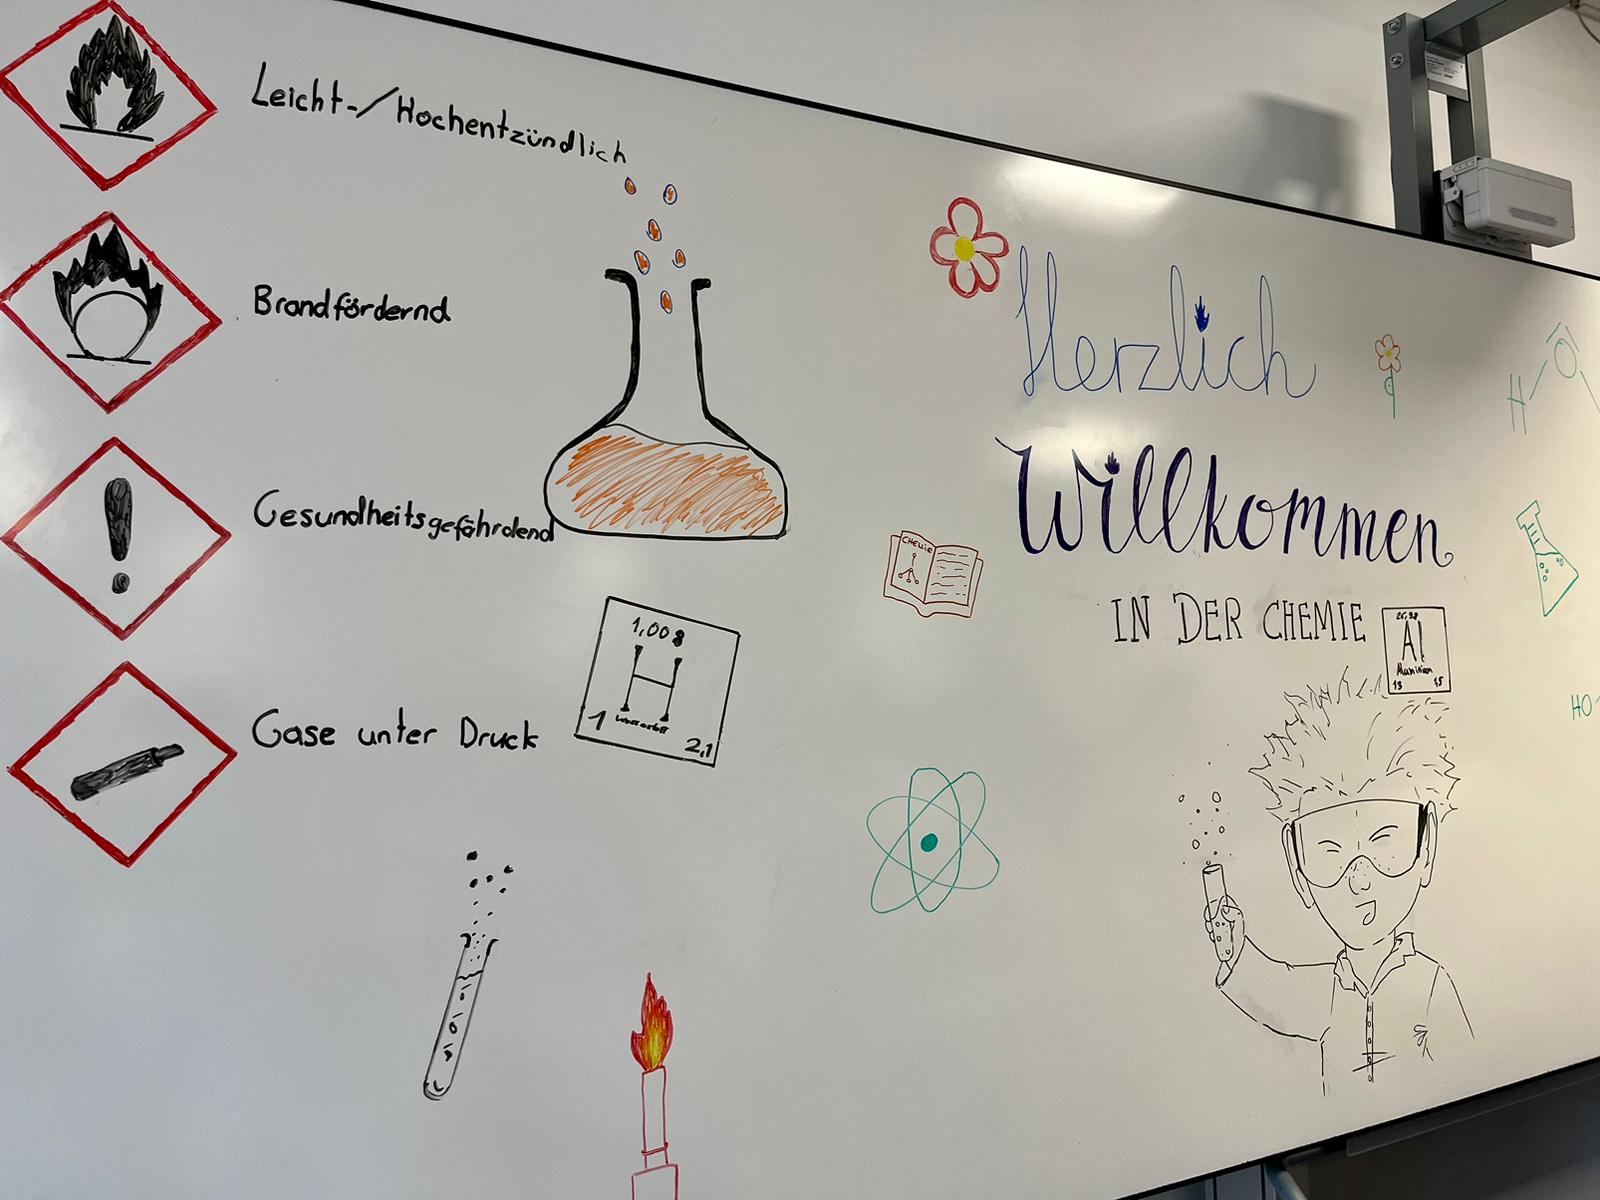 Leicht-/Hochentzündlich
Brandfördernd
Gesundheitsgefährdend
Gase unter Druck
1,008
H
Wasserstoff
1 2,1
Herzlich
Willkommen
IN DER CHEMIE
CHEMIE
26,98
Al
Aluminium
13 1,5
H O
HO